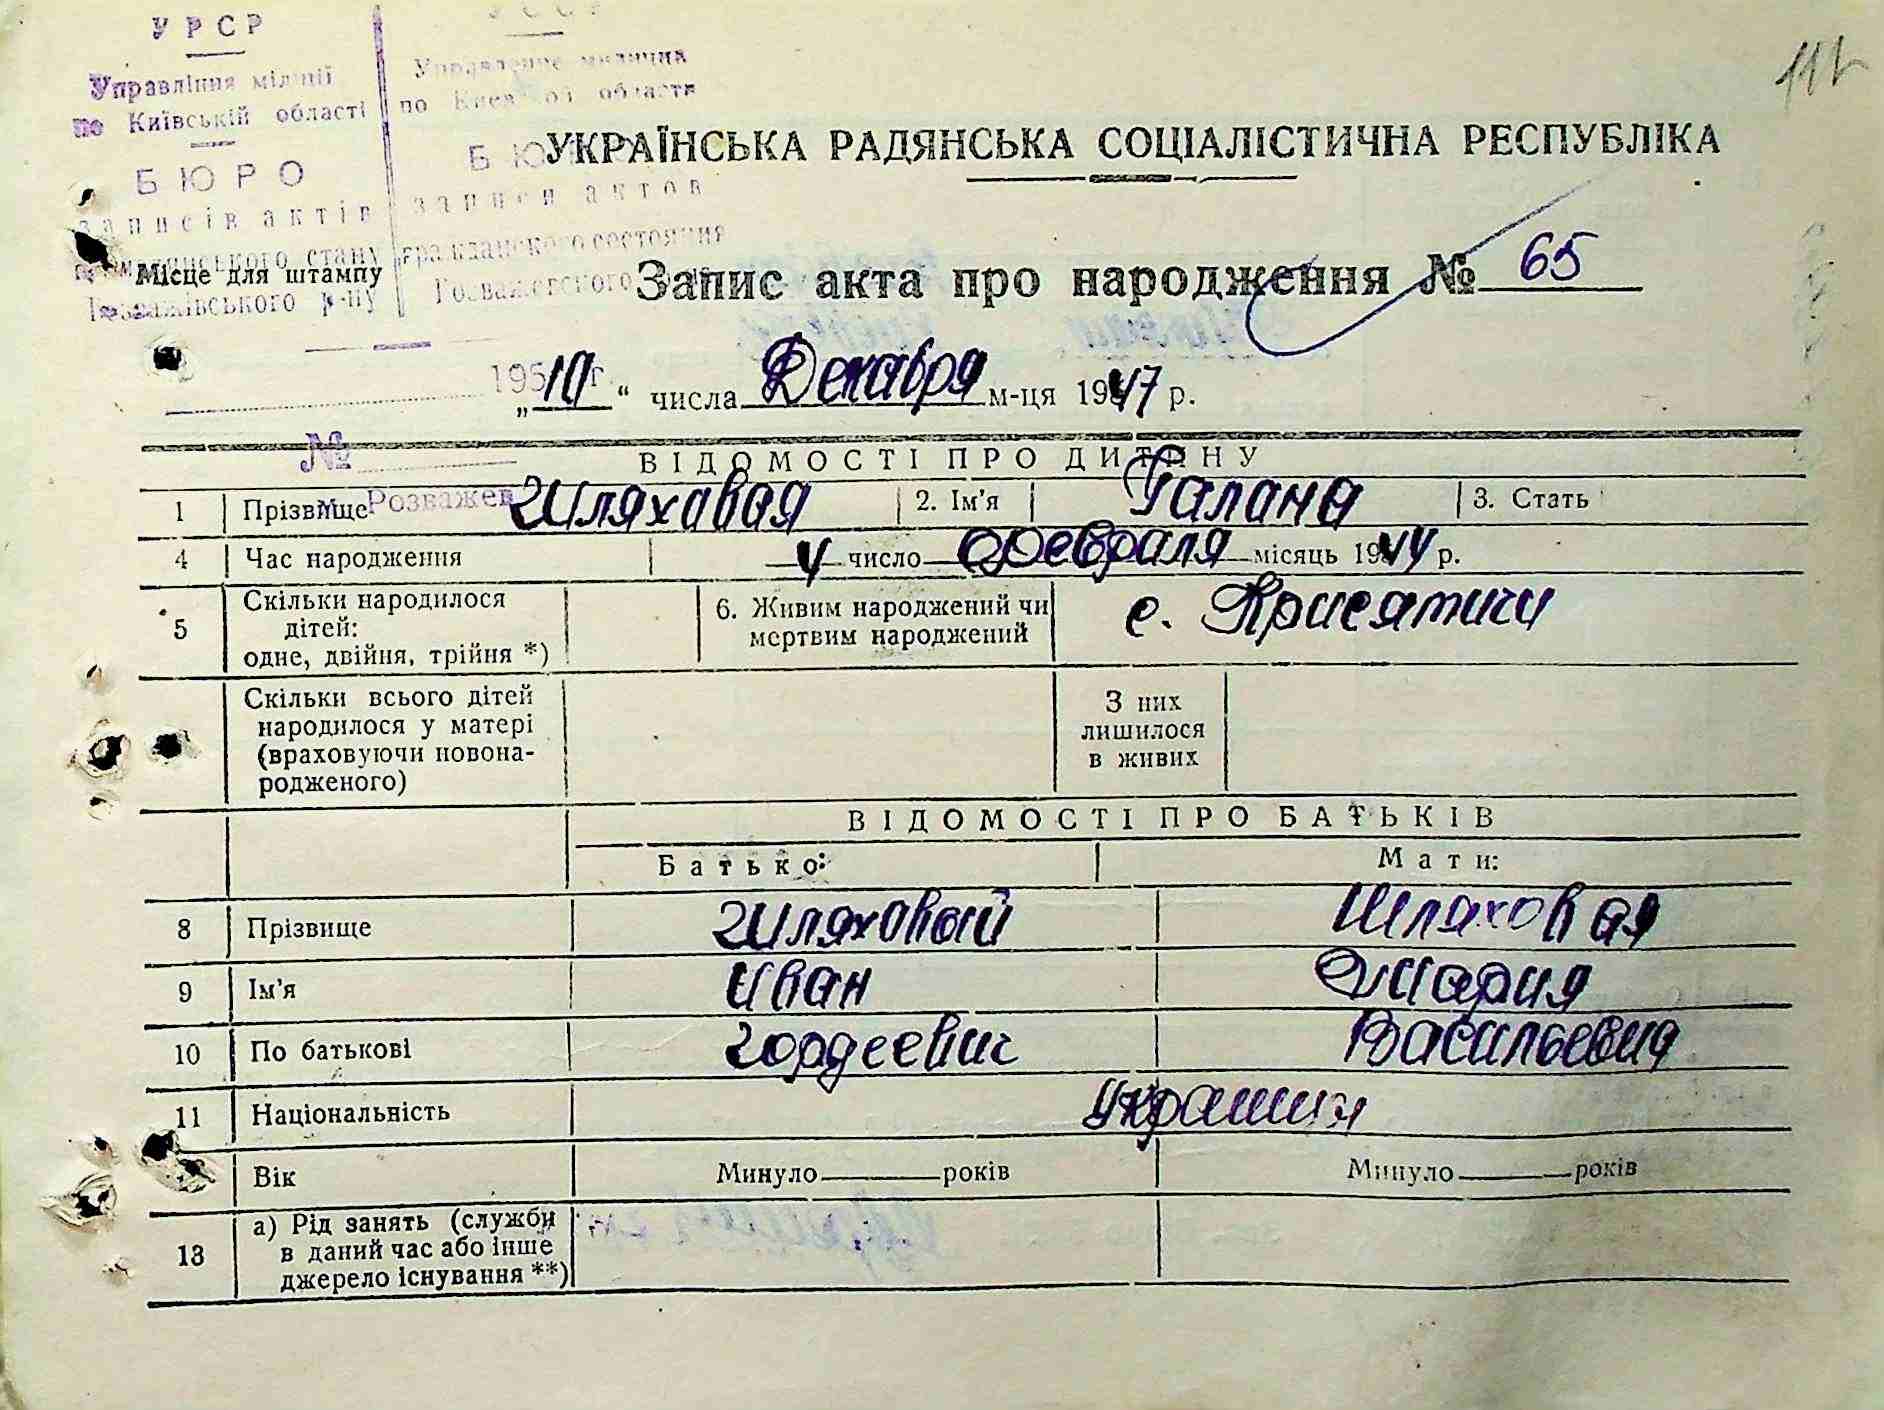 УРСР
Управління міліції
по Київській області
БЮРО
записів актів
громадянського стану
Розважівського р-ну
УССР
Управление милиции
по Киевской области
записи актов
гражданского состояния
112
УКРАЇНСЬКА РАДЯНСЬКА СОЦІАЛІСТИЧНА РЕСПУБЛІКА
Місце для штампу
Запис акта про народження № 65
195 г.
„10“ числа Декабря м-ця 1947 р.
№
Розважев
ВІДОМОСТІ ПРО ДИТИНУ
1 Прізвище Шляхавая 2. Ім’я Галана 3. Стать
4 Час народження 4 число Февраля місяць 1944 р.
5 Скільки народилося дітей: одне, двійня, трійня *) 6. Живим народжений чи мертвим народжений с. Крисятичи
Скільки всього дітей народилося у матері (враховуючи новона-родженого) З них лишилося в живих
ВІДОМОСТІ ПРО БАТЬКІВ
Батько: Мати:
8 Прізвище Шляховый Шляховая
9 Ім’я Иван Мария
10 По батькові Гордеевич Васильевна
11 Національність
Вік Минуло років Минуло років
13 а) Рід занять (служби в даний час або інше джерело існування **)